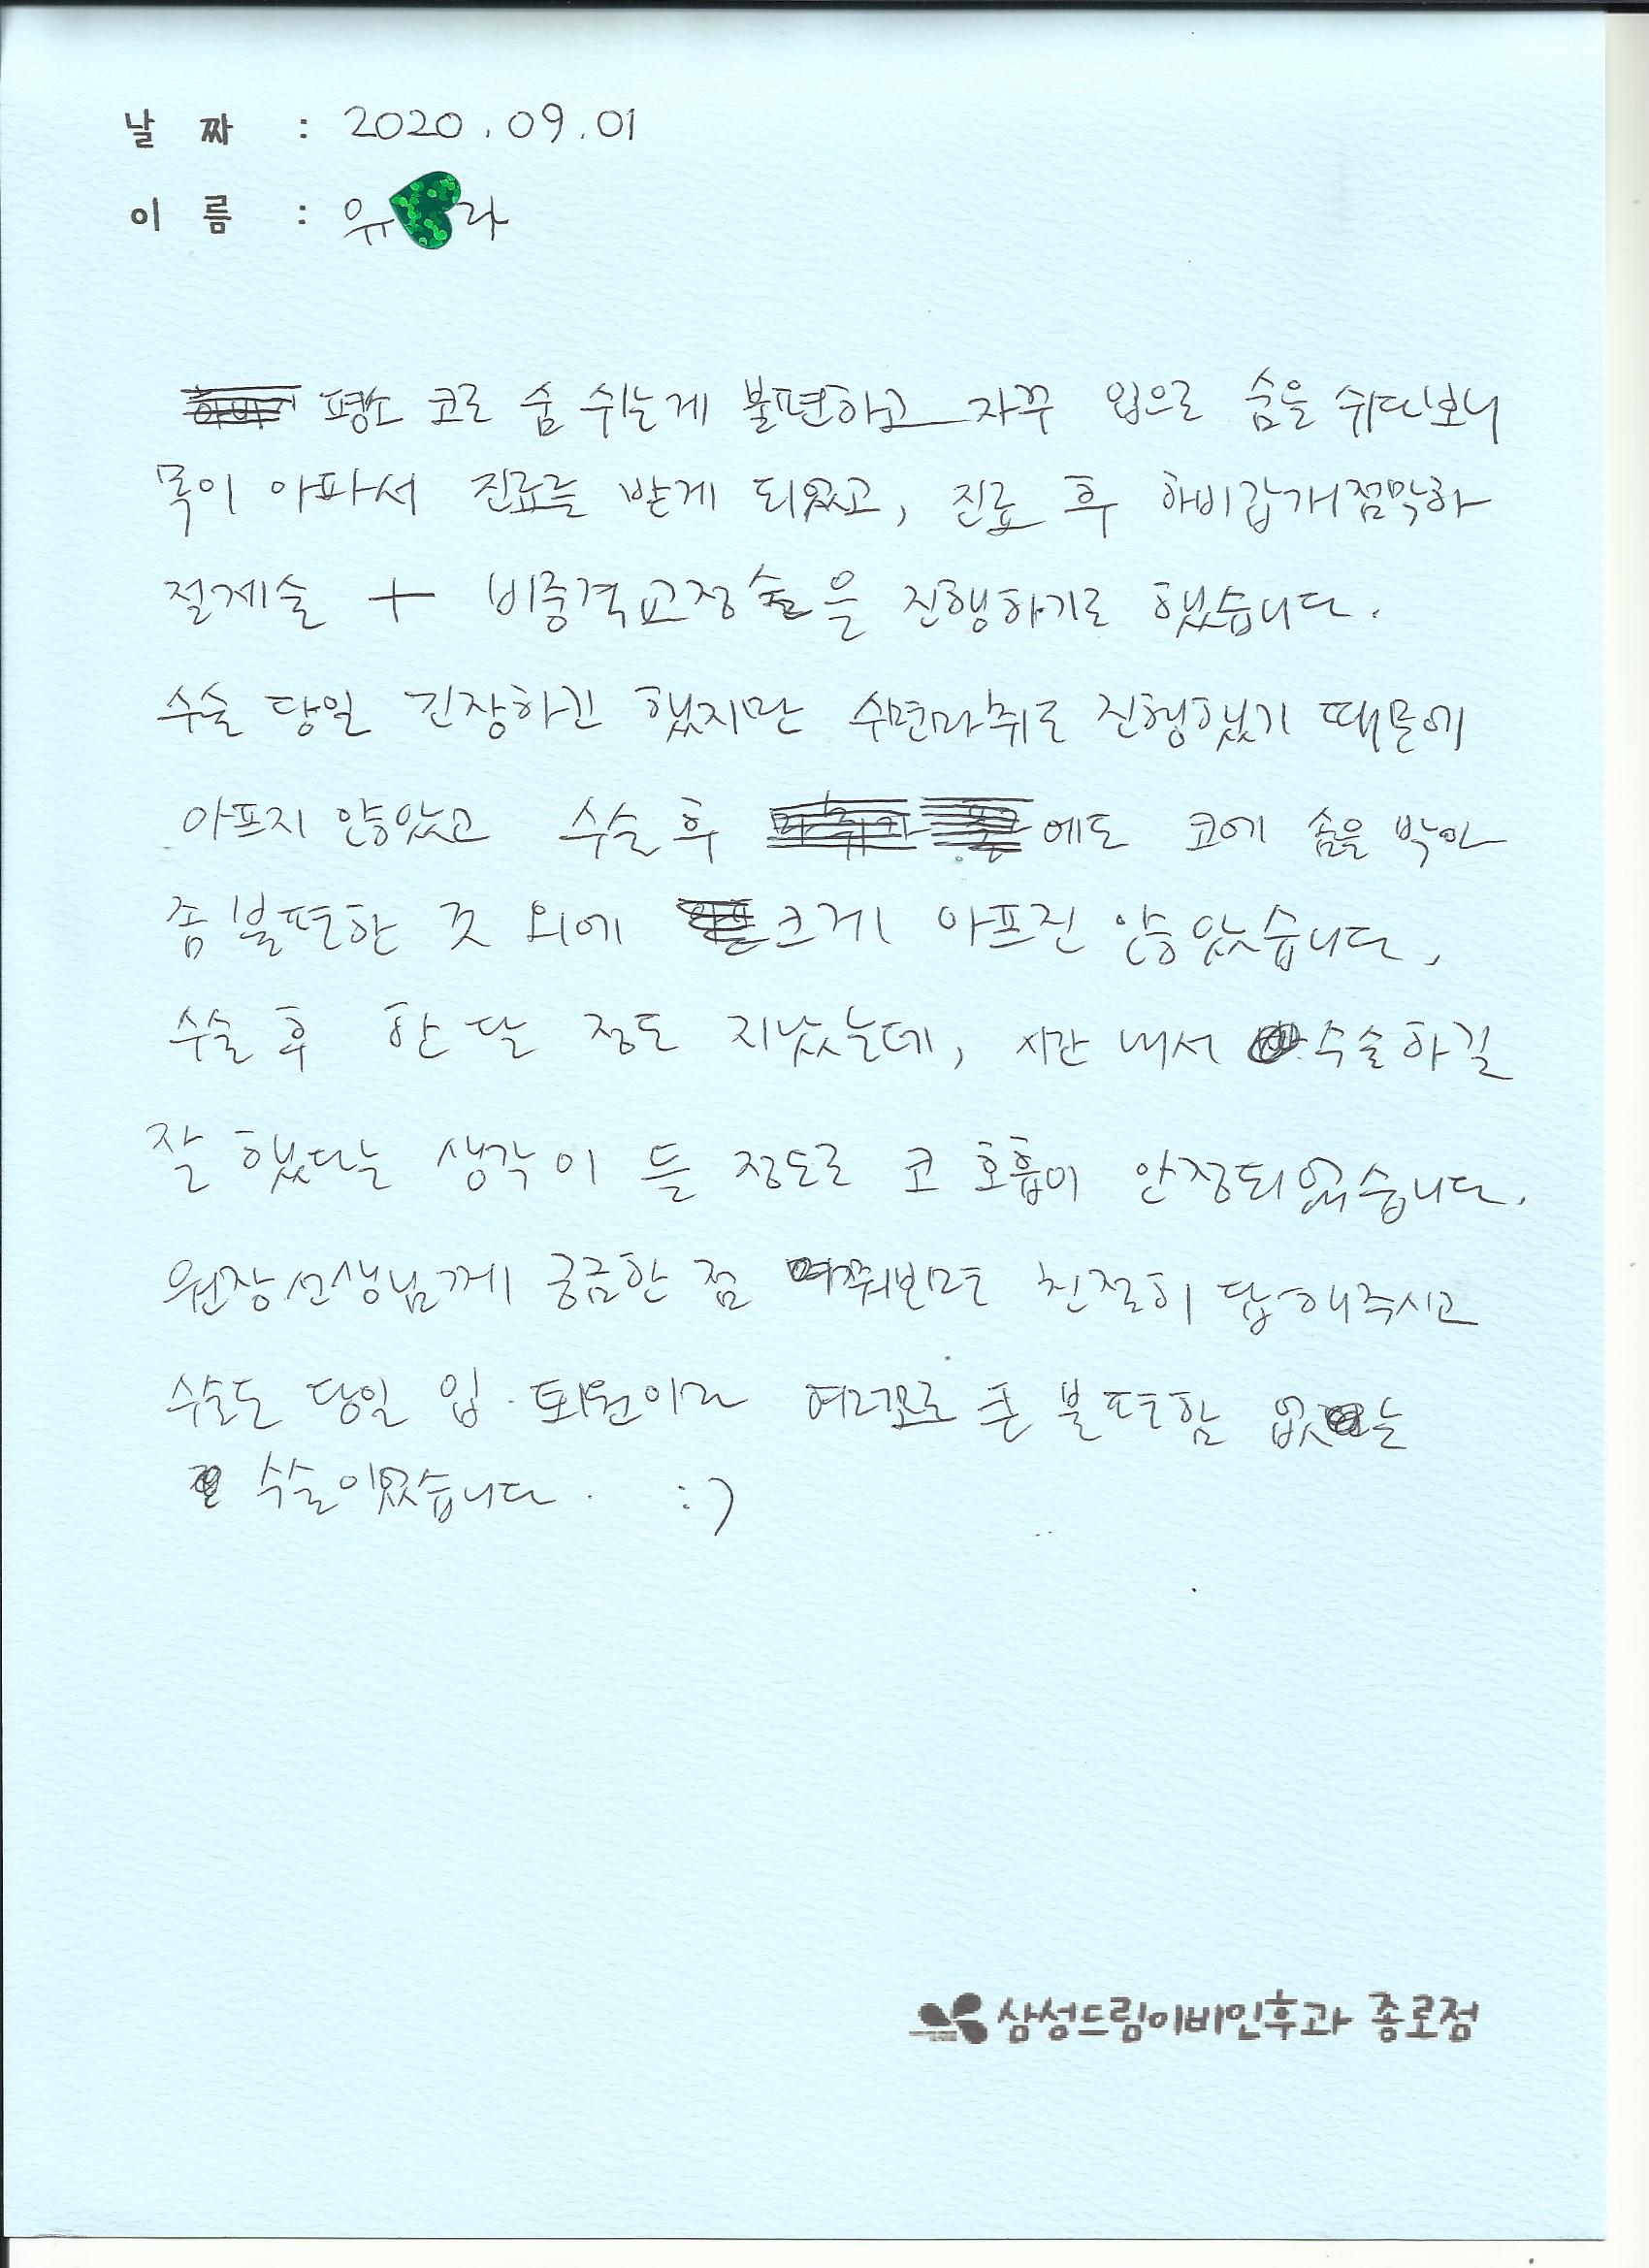 날 짜 : 2020.09.01
이 름 : 유 라
평소 코로 숨 쉬는게 불편하고 자꾸 입으로 숨을 쉬다보니
목이 아파서 진료를 받게 되었고, 진료 후 하비갑개점막하
절제술 + 비중격교정술을 진행하기로 했습니다.
수술 당일 긴장하긴 했지만 수면마취로 진행했기 때문에
아프지 않았고 수술 후 에도 코에 솜을 박아
좀 불편한 것 외에 크게 아프진 않았습니다.
수술 후 한 달 정도 지났는데, 시간 내서 수술하길
잘 했다는 생각이 들 정도로 코 호흡이 안정되었습니다.
원장선생님께 궁금한 점 여쭤보면 친절히 답해주시고
수술도 당일 입·퇴원이라 여러모로 큰 불편함 없는
수술이었습니다. :)
삼성드림이비인후과 종로점